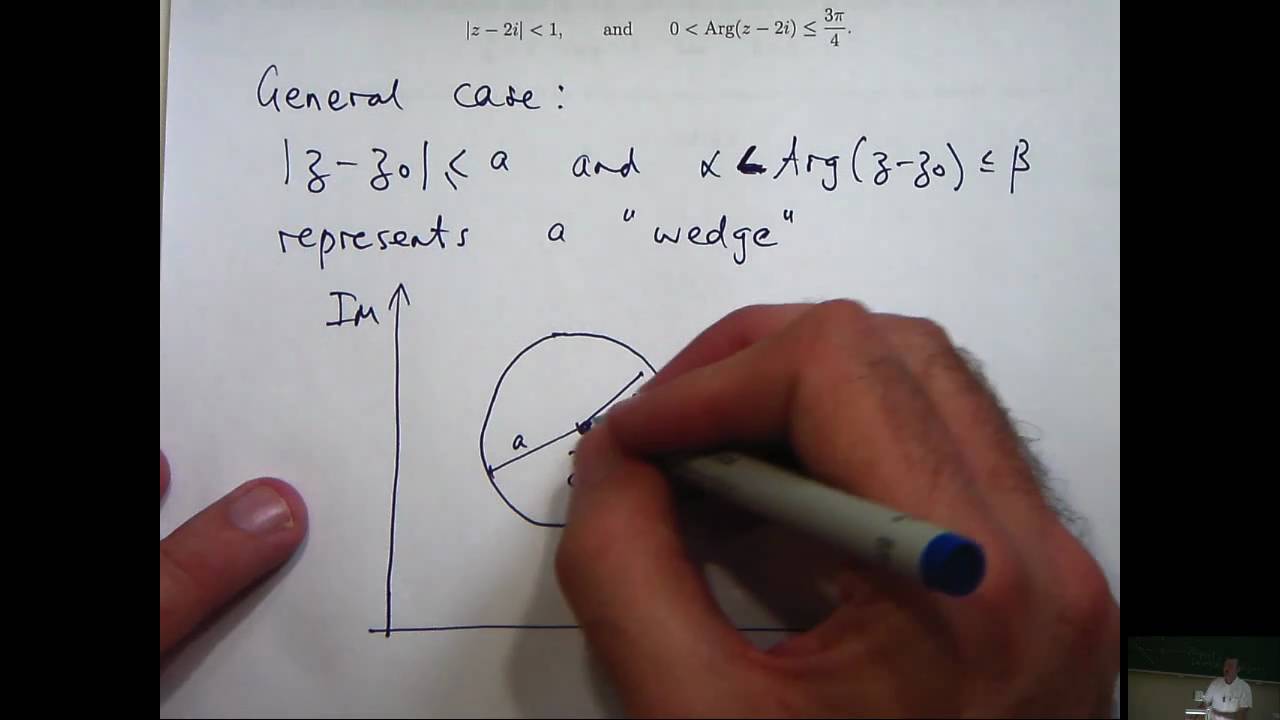 |z − 2i| < 1, and 0 < Arg(z − 2i) ≤ 3π/4.
General case:
|z − z₀| ≤ a and α < Arg(z − z₀) ≤ β
represents a "wedge"
Im
a